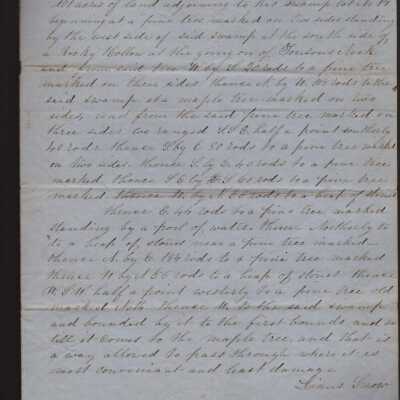 acres of land adjoining to his swamp lot to be
beginning at a pine tree marked on two sides standing
by the west side of said swamp at the south side of
a Rocky Hollow at the going on of Neck
and from said tree W. by S. rods to a pine tree
marked on three sides thence N. by W. rods to the
said swamp at a maple tree marked on two
sides, and from the said pine tree marked on
three sides we ranged S.S.E. half a point southerly
40 rods thence S. by E. 50 rods to a pine tree marked
on two sides. thence S. by E. 40 rods to a pine tree
marked, thence S. E. by S. 60 rods to a pine tree
marked thence N. by rods to a heap of stones
thence E. 44 rods to a pine tree marked
standing by a port of water Thence Northerly to
to a heap of stones near a pine tree marked
thence N. by E. 144 rods to a pine tree marked
thence W. by N 56 rods to a heap of stones thence
W. S. W. half a point westerly to a pine tree old
marked thence W. to the said swamp
and bounded by it to the first bounds and so
till it comes to the maple tree, and that is
a way allowed to pass through where it is
most convenient and least damage
Snow